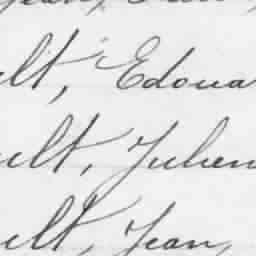 ult, Edoua
ult, Julien
ult, Jean,